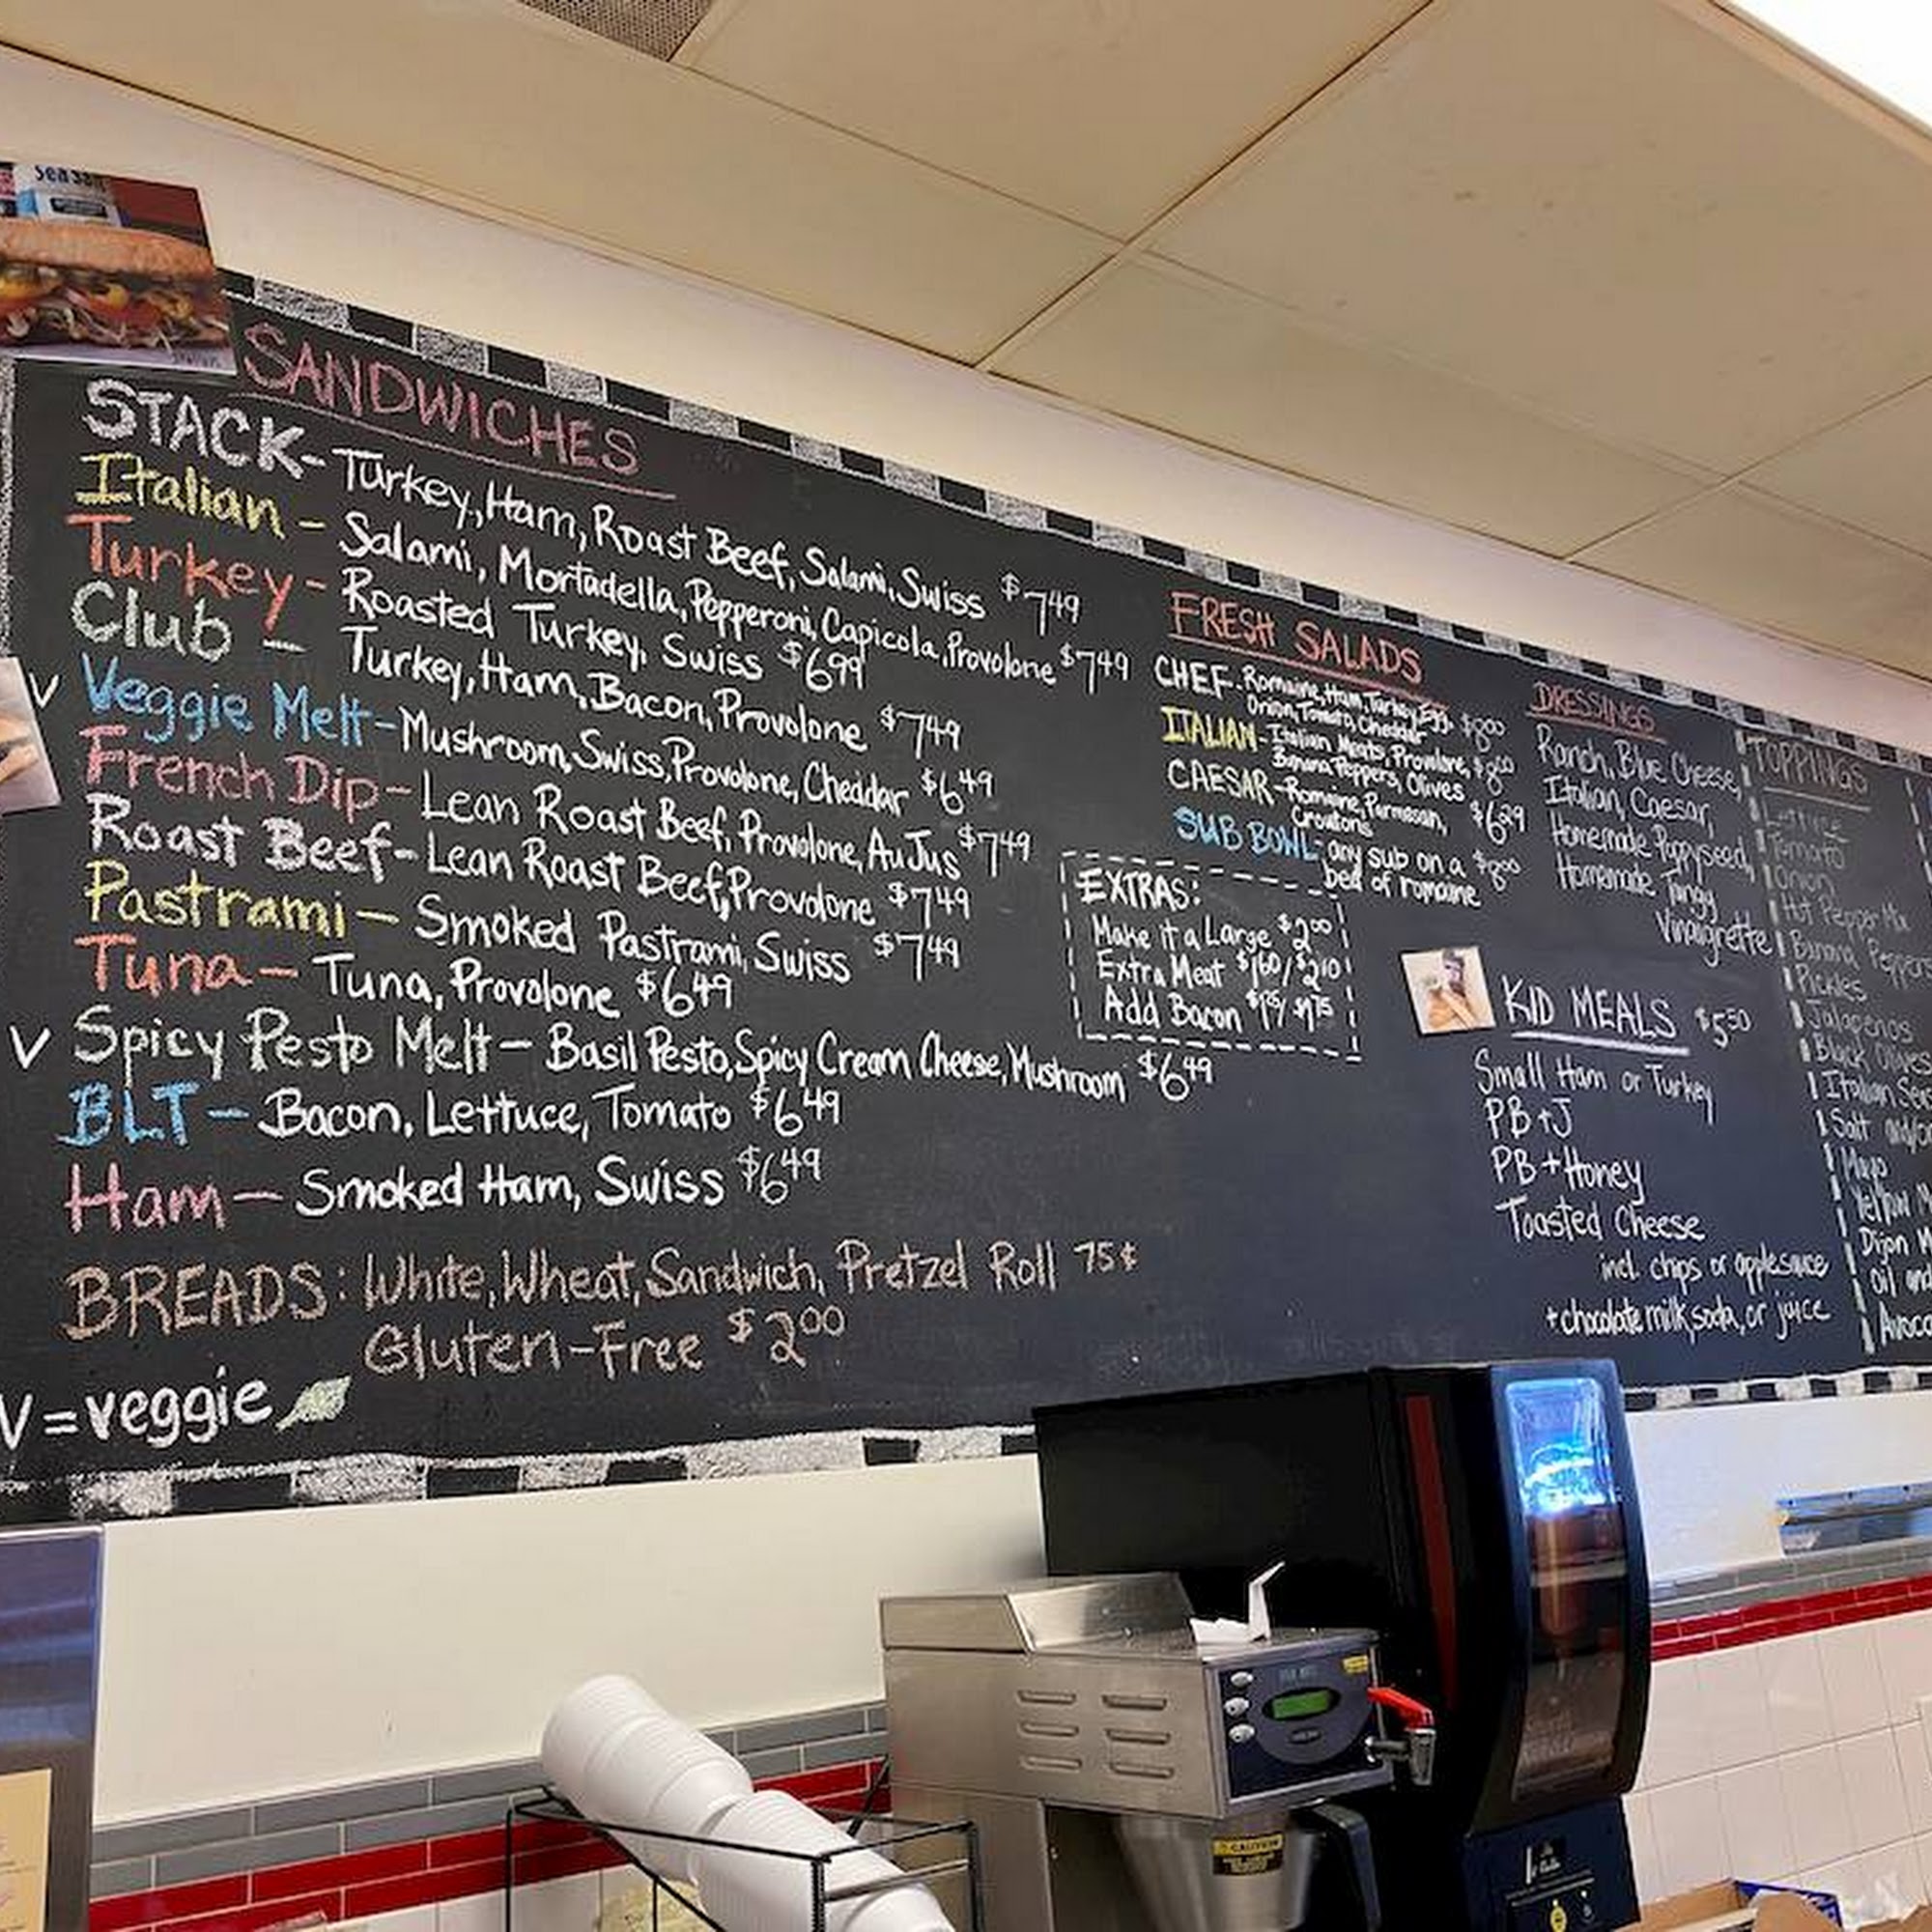 Sea Salt
SANDWICHES
STACK- Turkey, Ham, Roast Beef, Salami, Swiss $7.49
Italian - Salami, Mortadella, Pepperoni, Capicola, Provolone $7.49
Turkey- Roasted Turkey, Swiss $6.99
Club - Turkey, Ham, Bacon, Provolone $7.49
V Veggie Melt- Mushroom, Swiss, Provolone, Cheddar $6.49
French Dip- Lean Roast Beef, Provolone, Au Jus $7.49
Roast Beef- Lean Roast Beef, Provolone $7.49
Pastrami - Smoked Pastrami, Swiss $7.49
Tuna - Tuna, Provolone $6.49
V Spicy Pesto Melt - Basil Pesto, Spicy Cream Cheese, Mushroom $6.49
BLT - Bacon, Lettuce, Tomato $6.49
Ham - Smoked Ham, Swiss $6.49
BREADS: White, Wheat, Sandwich, Pretzel Roll 75¢
Gluten-Free $2.00
V = veggie
FRESH SALADS
CHEF- Romaine, Ham, Turkey, Egg, $8.00
Onion, Tomato, Cheddar
ITALIAN- Italian Meats, Provolone, $8.00
Banana Peppers, Olives
CAESAR- Romaine, Parmesan, $6.29
Croutons
SUB BOWL- any sub on a $8.00
bed of romaine
EXTRAS:
Make it a Large $2.00
Extra Meat $1.60/$2.10
Add Bacon $1.25/$1.75
DRESSINGS
Ranch, Blue Cheese,
Italian, Caesar,
Homemade Poppyseed,
Homemade Tangy
Vinaigrette
KID MEALS $5.50
Small Ham or Turkey
PB+J
PB+Honey
Toasted Cheese
incl. chips or applesauce
+ chocolate milk, soda, or juice
TOPPINGS
Lettuce
Tomato
Onion
Hot Pepper Mix
Banana Peppers
Pickles
Jalapenos
Black Olives
Italian Sea
Salt and/or
Mayo
Yellow M
Dijon M
Oil and
Avoca
CAUTION